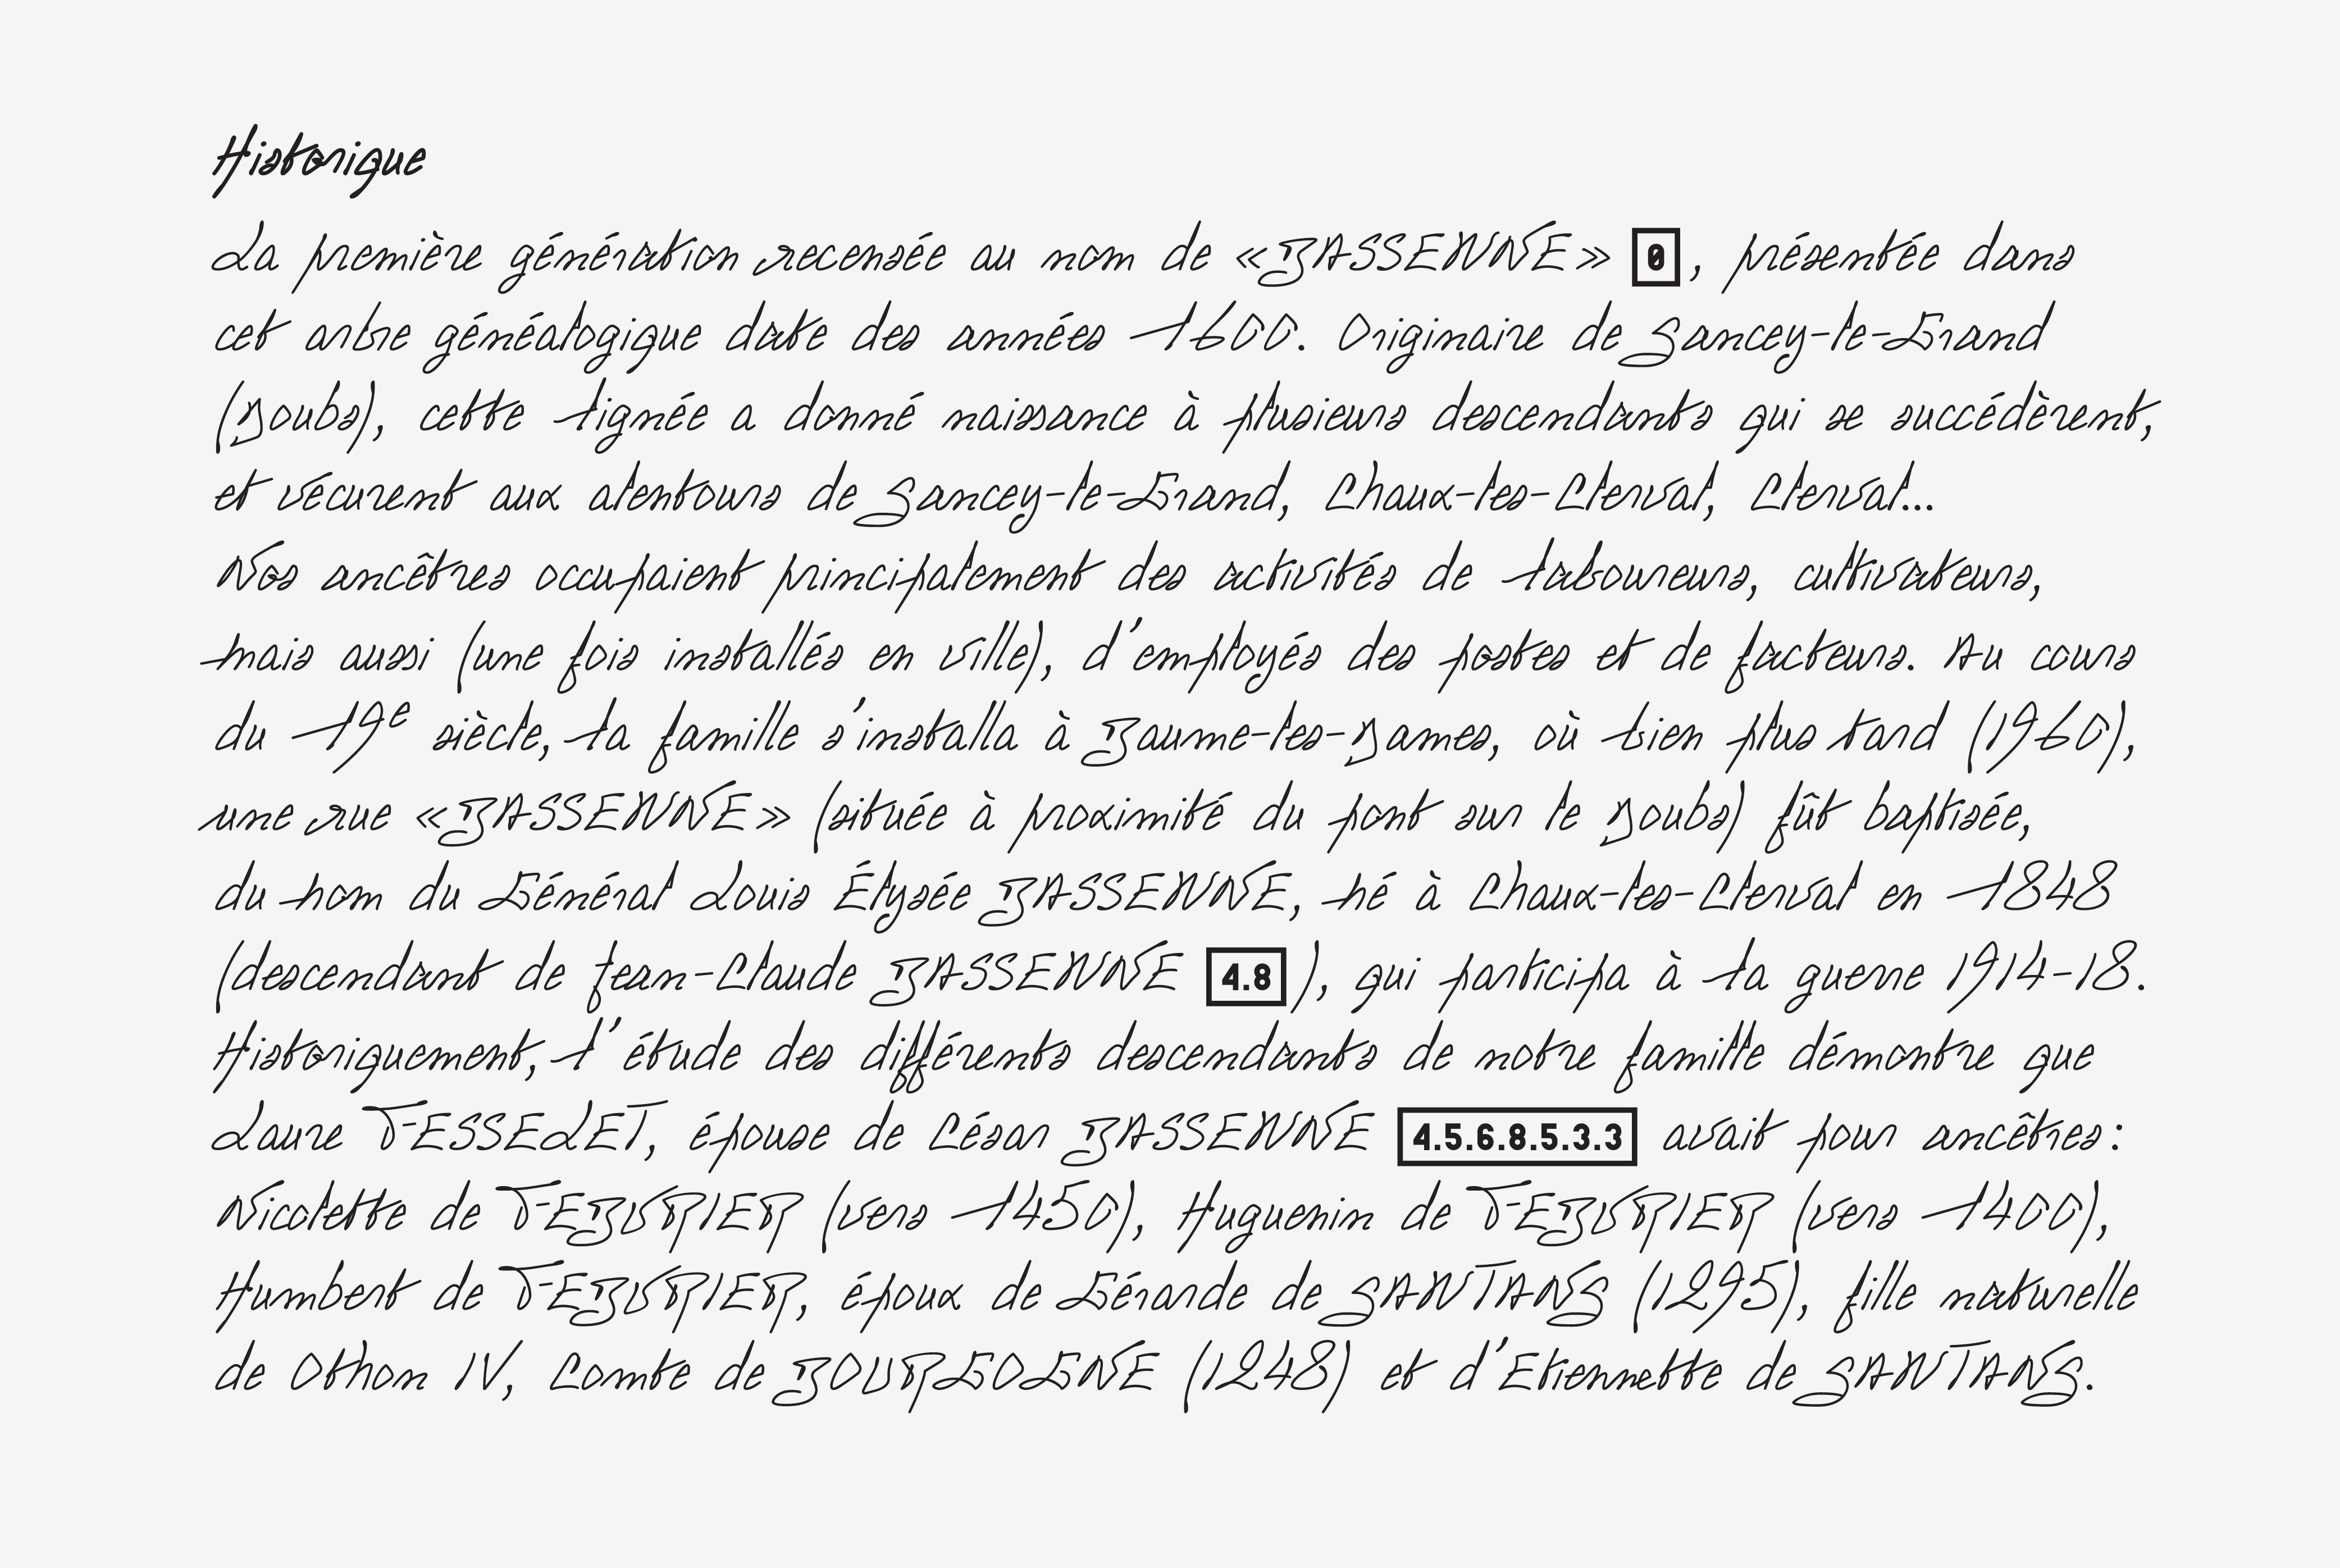 Historique
La première génération recensée au nom de «BASSENNE» 0, présentée dans
cet arbre généalogique date des années 1600. Originaire de Sancey-le-Grand
(Doubs), cette lignée a donné naissance à plusieurs descendants qui se succédèrent,
et vécurent aux alentours de Sancey-le-Grand, Chaux-les-Clerval, Clerval...
Nos ancêtres occupaient principalement des activités de laboureurs, cultivateurs,
mais aussi (une fois installés en ville), d'employés des postes et de facteurs. Au cours
du 19e siècle, la famille s'installa à Baume-les-Dames, où bien plus tard (1960),
une rue «BASSENNE» (située à proximité du pont sur le Doubs) fût baptisée,
du nom du Général Louis Élysée BASSENNE, né à Chaux-les-Clerval en 1848
(descendant de Jean-Claude BASSENNE 4.8), qui participa à la guerre 1914-18.
Historiquement, l'étude des différents descendants de notre famille démontre que
Laure FESSELET, épouse de César BASSENNE 4.5.6.8.5.3.3 avait pour ancêtres:
Nicolette de FEBVRIER (vers 1450), Huguenin de FEBVRIER (vers 1400),
Humbert de FEBVRIER, époux de Gérarde de SANTANS (1295), fille naturelle
de Othon IV, Comte de BOURGOGNE (1248) et d'Etiennette de SANTANS.